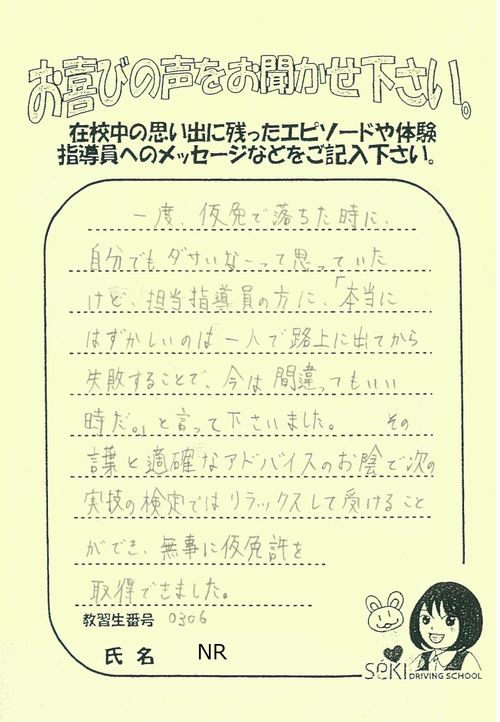 お喜びの声をお聞かせ下さい。
在校中の思い出に残ったエピソードや体験
指導員へのメッセージなどをご記入下さい。
一度、仮免で落ちた時に、
自分でもダサいなーって思っていた
けど、担当指導員の方に、「本当に
はずかしいのは一人で路上に出てから
失敗することで、今は間違ってもいい
時だ。」と言って下さいました。 その
言葉と適確なアドバイスのお陰で次の
実技の検定ではリラックスして受けること
ができ、無事に仮免許を
取得できました。
教習生番号 0306
氏名 NR
SEKI DRIVING SCHOOL